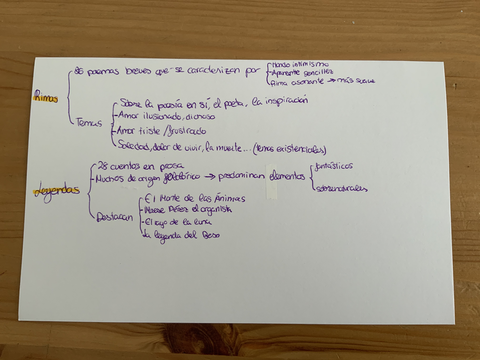 Rimas
86 poemas breves que se caracterizan por
intimismo
Aparente sencillez
Rima asonante → más suave
Temas
Sobre la poesía en sí, el poeta, la inspiración
Amor ilusionado, dichoso
Amor triste / frustrado
Soledad, dolor de vivir, la muerte... (temas existenciales)
Leyendas
28 cuentos en prosa
Muchos de origen → predominan elementos
fantásticos
sobrenaturales
Destacan
El Monte de las Ánimas
Maese Pérez el organista
El rayo de la luna
La leyenda del Beso